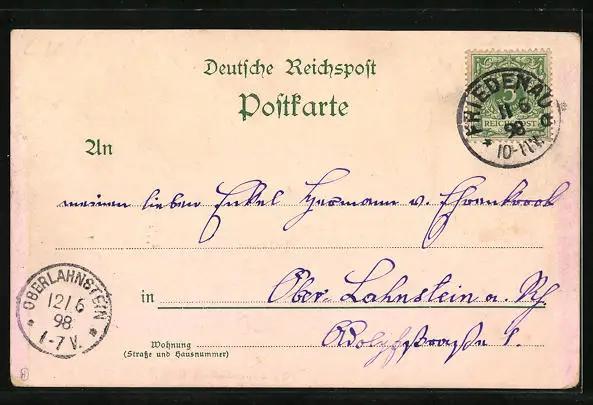 Deutsche Reichspost
Postkarte
REICHSPOST
FRIEDENAU
11 6
98
* 10-11V. *
An
meinen lieben Enkel Hermann v. Ehrenkrook
in Ober-Lahnstein a. Rh
Wohnung
(Straße und Hausnummer)
Adolfstraße 1.
* OBERLAHNSTEIN *
12/6
98
1-7 V.